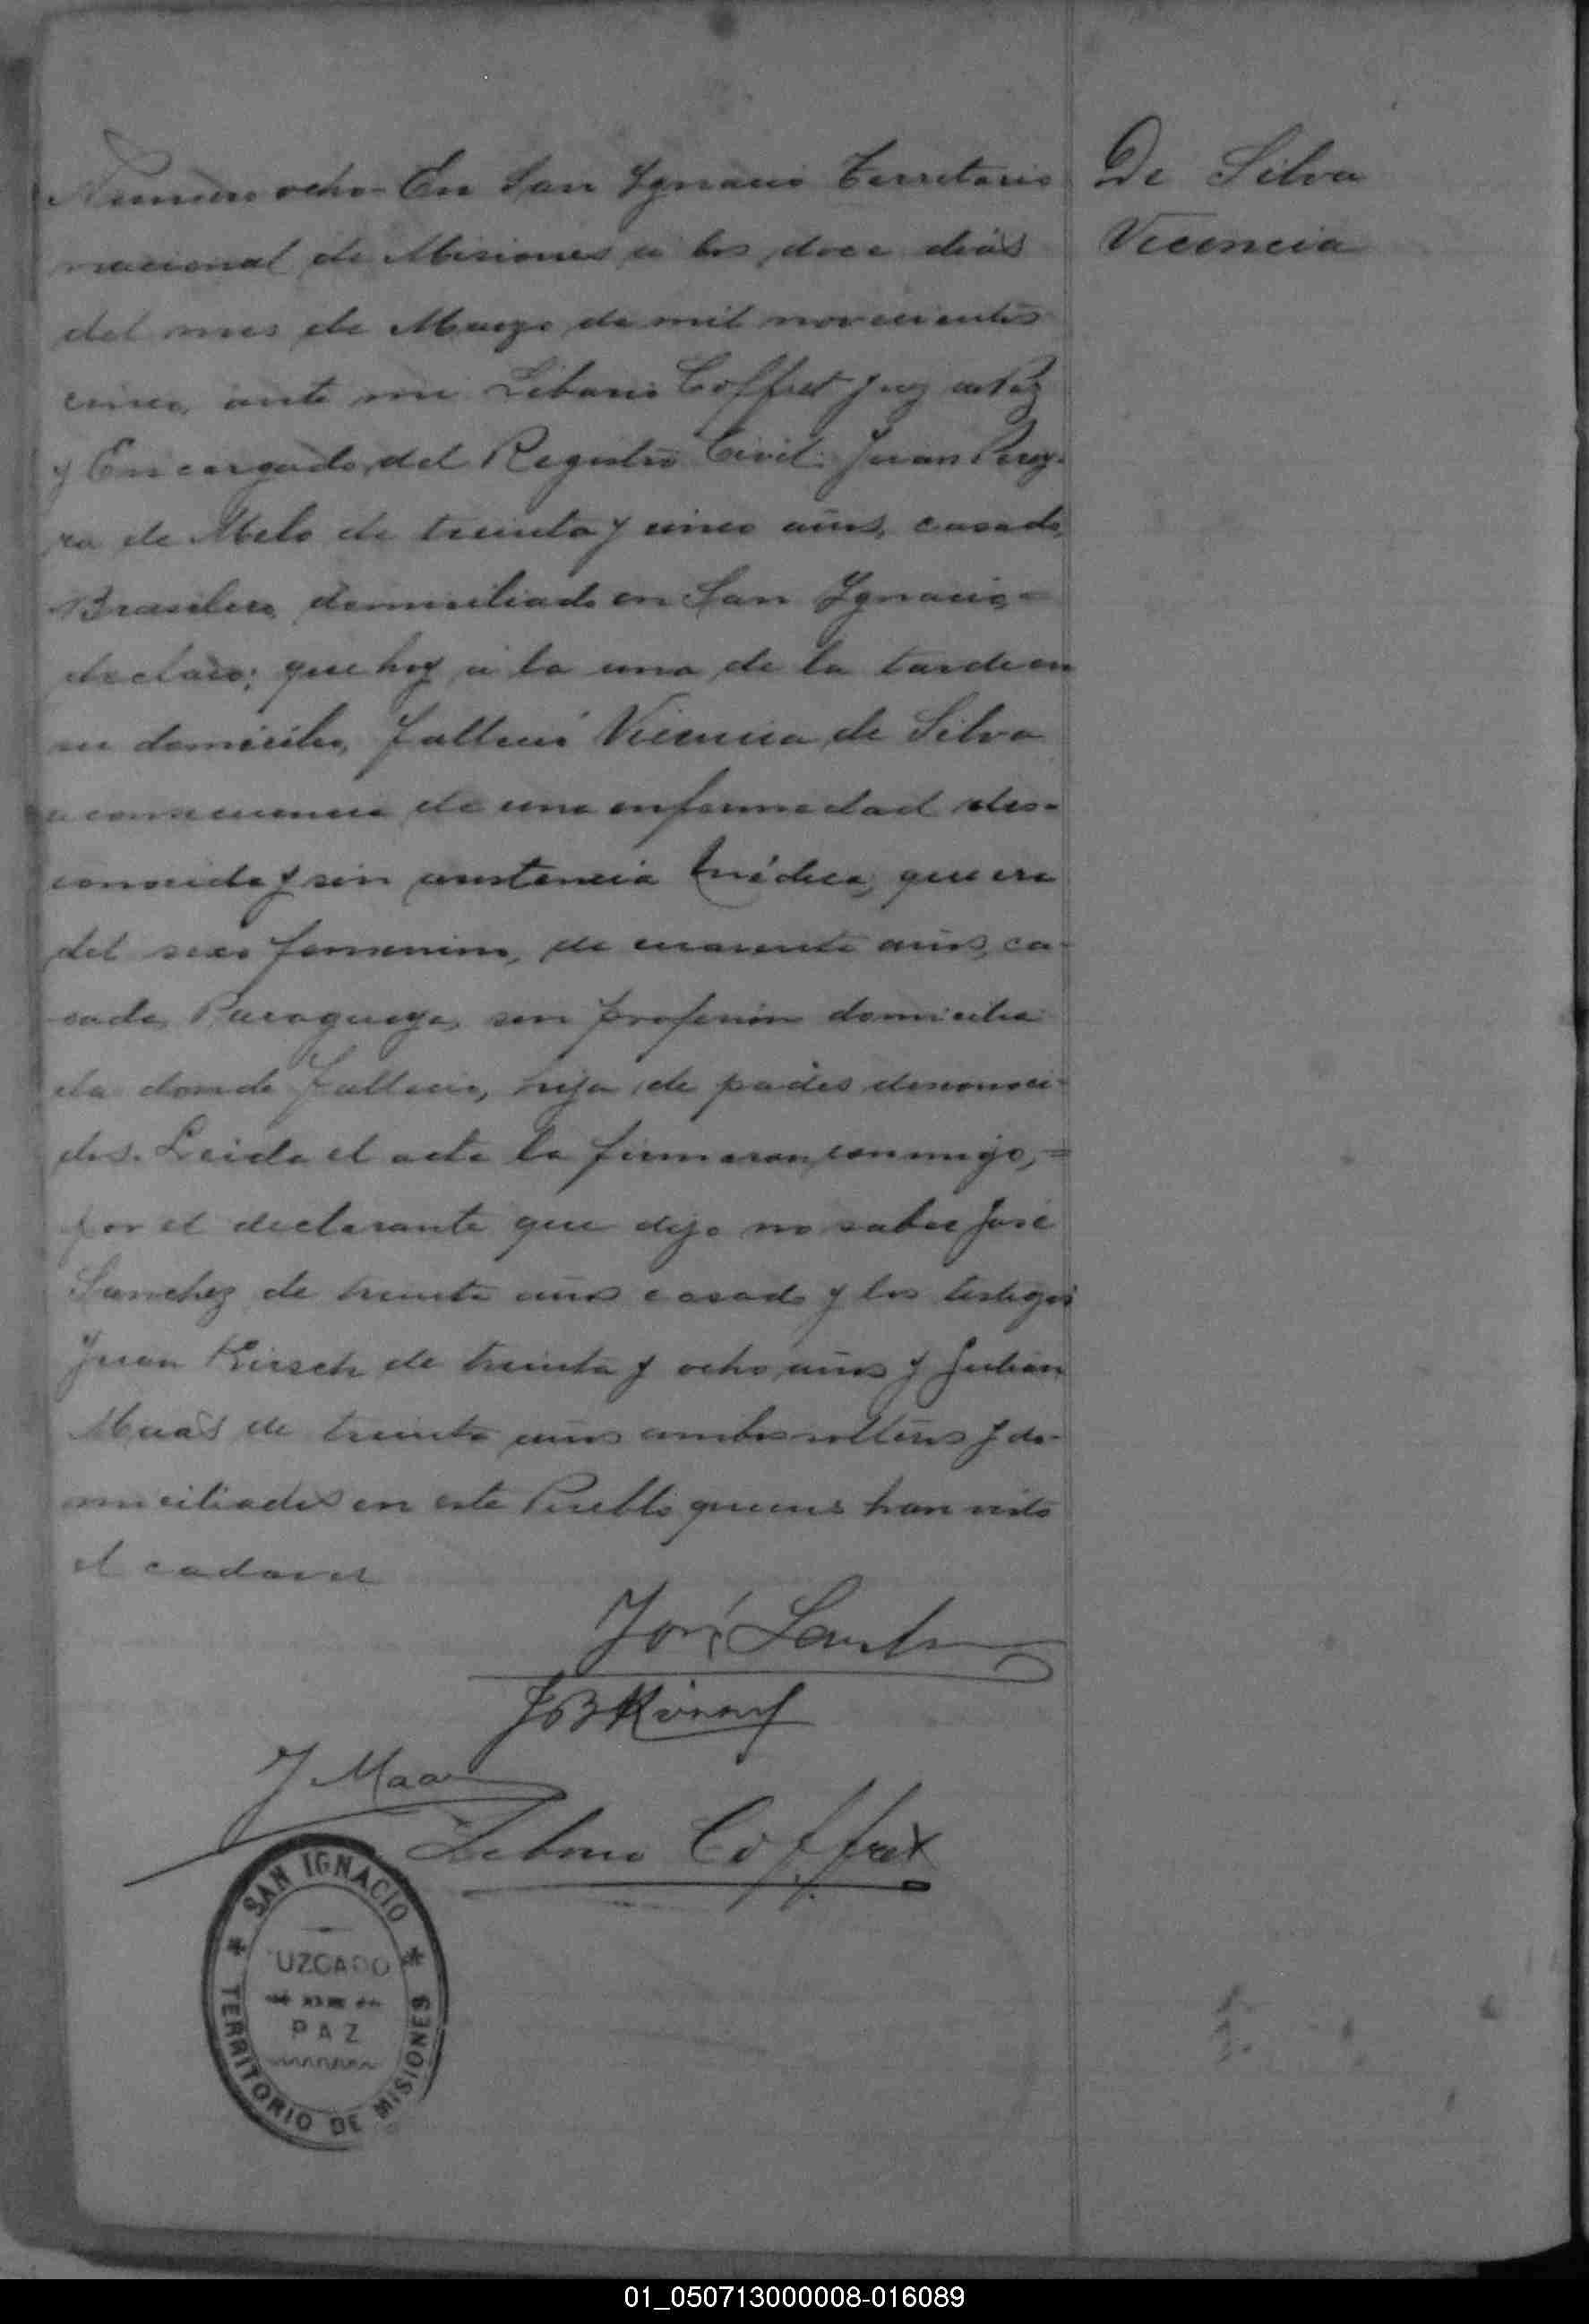 Numero ocho - En San Ygnacio Territorio
nacional de Misiones a los doce dias
del mes de Marzo de mil novecientos
cinco, ante mi Liborio Coffret Juez de Paz
y Encargado del Registro Civil: Juan Perey-
ra de Melo de treinta y cinco años, casado,
Brasilero, domiciliado en San Ygnacio, =
declaro; que hoy a la una de la tarde en
su domicilio, falleció Vicencia de Silva
a consecuencia de una enfermedad des-
conocida y sin asistencia médica, que era
del sexo femenino, de cuarenta años, ca-
sada, Paraguaya, sin profesión domicilia
da donde falleció, hija de padres desconoci-
dos. Leida el acta la firmaron conmigo, =
por el declarante que dijo no saber José
Sanchez de treinta años casado y los testigos
Juan Kirsch de treinta y ocho años y Julian
Maas de treinta años ambos solteros y do-
miciliados en este Pueblo quienes han visto
el cadaver
De Silva
Vicencia
José
J B
J Maas
Coffret
SAN IGNACIO
UZGADO
PAZ
TERRITORIO DE MISIONES
01_050713000008-016089